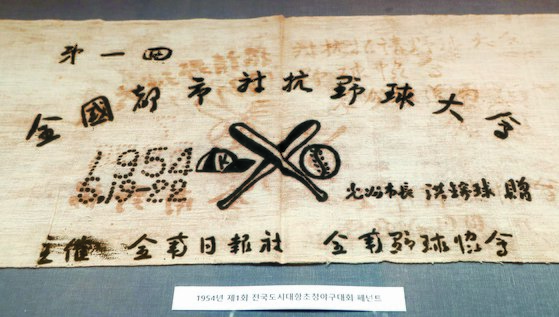 第一回
全國都市対抗野球大会
1954
6.19-22
K
光州市長 洪 贈
主催 全南日報社 全南野球協会
1954년 제1회 전국도시대항초청야구대회 페넌트